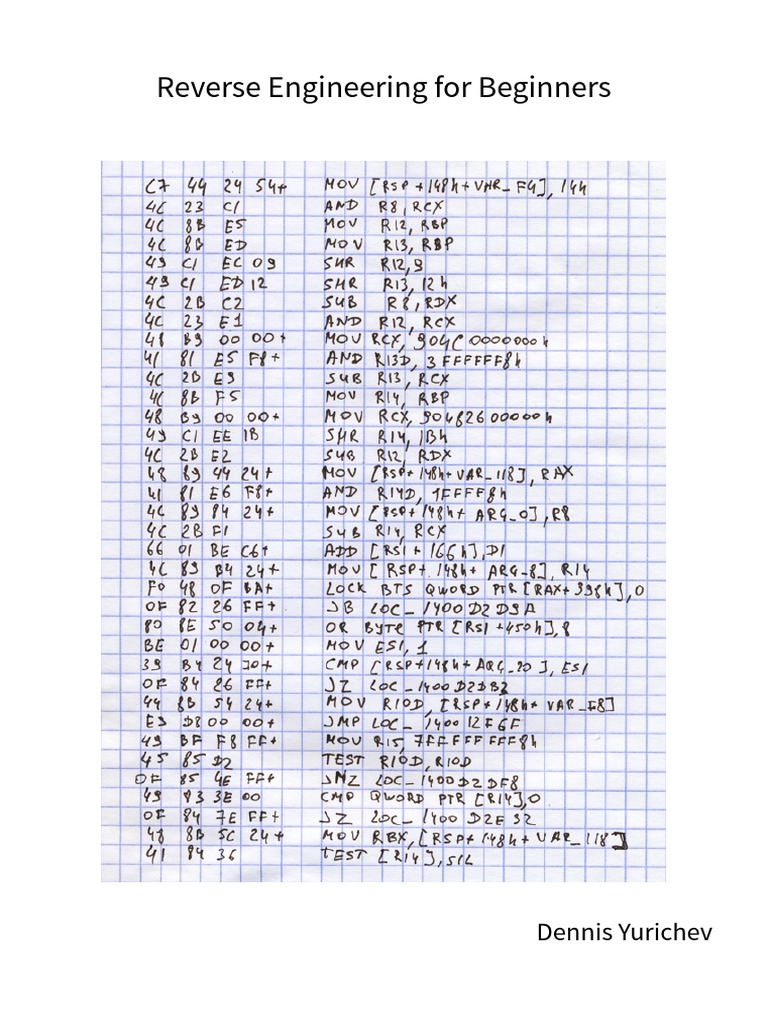 Reverse Engineering for Beginners
C7 44 24 54+ MOV [RSP+148h+VAR_F4], 14h
4C 23 C1 AND R8, RCX
4C 8B E5 MOV R12, RBP
4C 8B ED MOV R13, RBP
49 C1 EC 09 SHR R12, 9
49 C1 ED 12 SHR R13, 12h
4C 2B C2 SUB R8, RDX
4C 23 E1 AND R12, RCX
48 B9 00 00+ MOV RCX, 904C0000000h
41 81 E5 F8+ AND R13D, 3FFFFFF8h
4C 2B E9 SUB R13, RCX
4C 8B F5 MOV R14, RBP
48 B9 00 00+ MOV RCX, 90482600000h
49 C1 EE 1B SHR R14, 1Bh
4C 2B E2 SUB R12, RDX
48 89 44 24+ MOV [RSP+148h+VAR_118], RAX
41 81 E6 F8+ AND R14D, 1FFFF8h
4C 89 84 24+ MOV [RSP+148h+ARG_0], R8
4C 2B F1 SUB R14, RCX
66 01 BE C6+ ADD [RSI+166h], DI
4C 89 B4 24+ MOV [RSP+148h+ARG_8], R14
F0 48 0F BA+ LOCK BTS QWORD PTR [RAX+398h], 0
0F 82 26 FF+ JB LOC_1400D2D9A
80 8E 50 04+ OR BYTE PTR [RSI+450h], 8
BE 01 00 00+ MOV ESI, 1
39 B4 24 70+ CMP [RSP+148h+ARG_20], ESI
0F 84 26 FF+ JZ LOC_1400D2DB2
44 8B 54 24+ MOV R10D, [RSP+148h+VAR_F8]
E9 D8 00 00+ JMP LOC_140012F6F
49 BF F8 FF+ MOV R15, 7FFFFFFFF8h
45 85 D2 TEST R10D, R10D
0F 85 4E FF+ JNZ LOC_1400D2DF8
49 83 3E 00 CMP QWORD PTR [R14], 0
0F 84 7E FF+ JZ LOC_1400D2E32
48 8B 5C 24+ MOV RBX, [RSP+148h+VAR_118]
41 84 36 TEST [R14], SIL
Dennis Yurichev